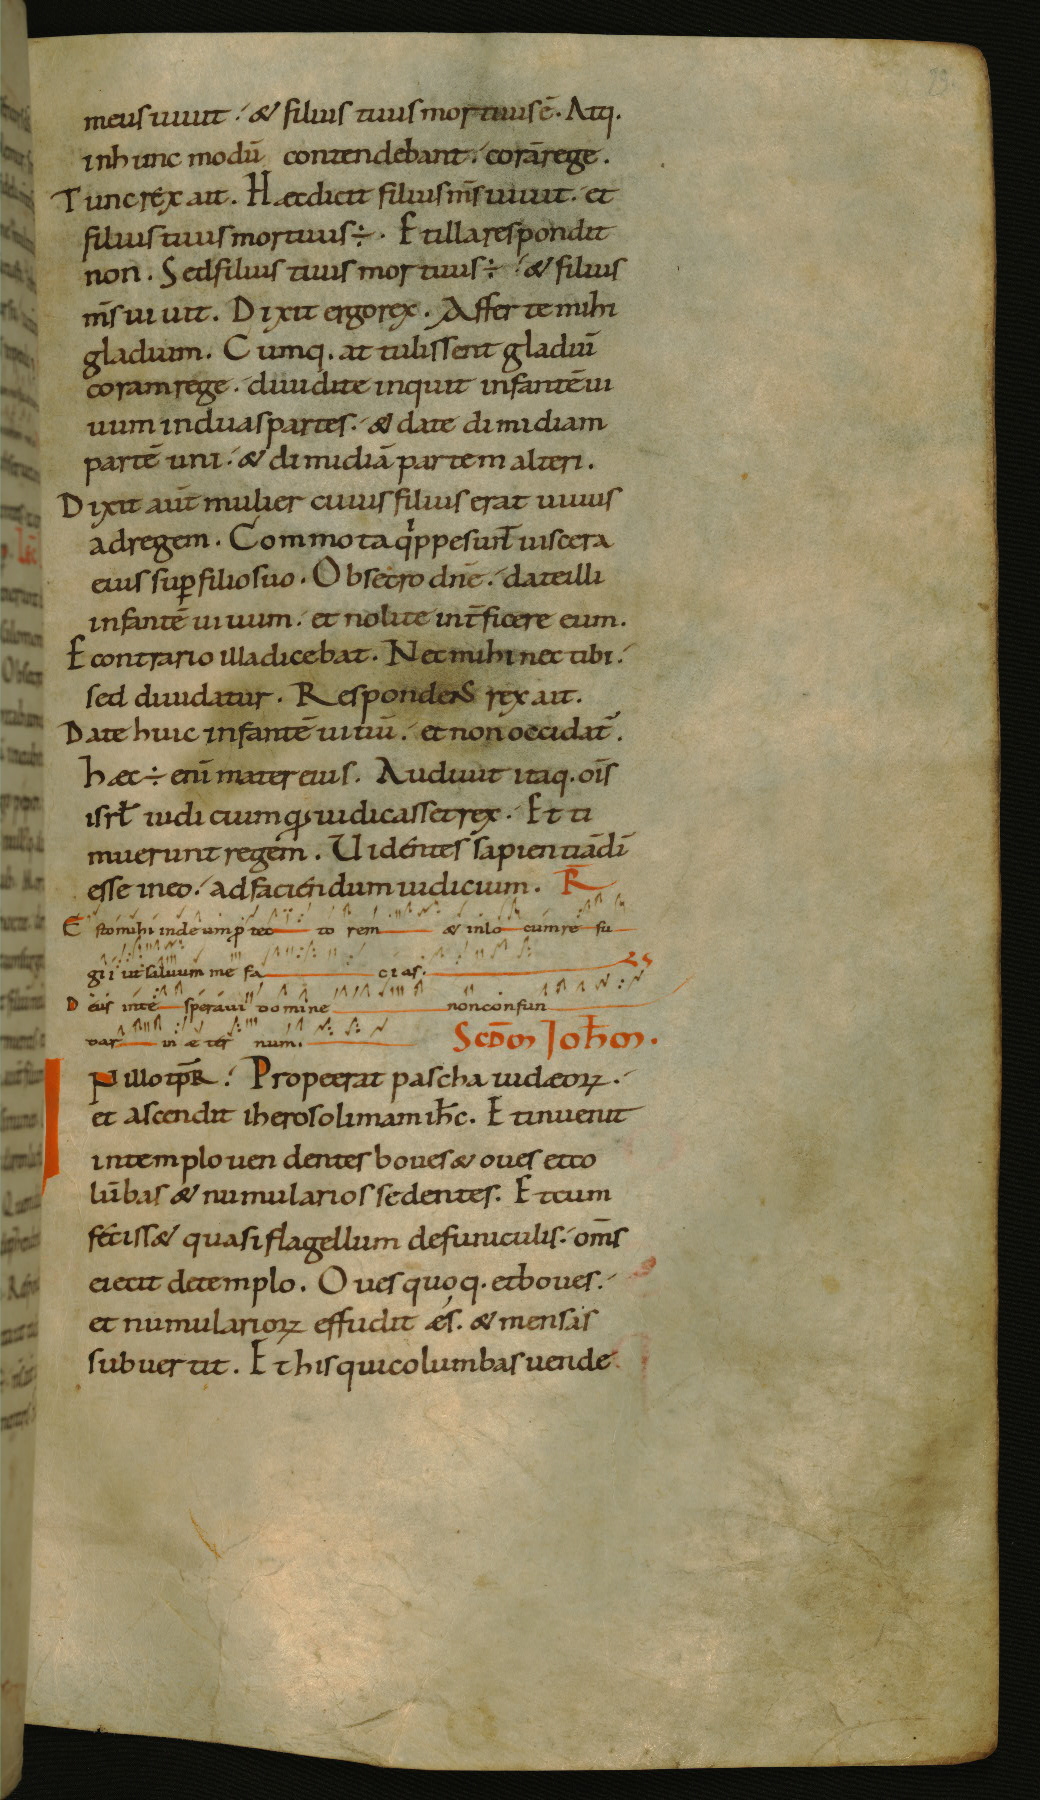 meus uiuit. & filius tuus mortuus ē. Atq.
in hunc modū contendebant. corā rege.
Tunc rex ait. Haec dicit filius m̄s uiuit. et
filius tuus mortuus ÷. Et illa respondit
non. Sed filius tuus mortuus ÷. & filius
m̄s uiuit. Dixit ergo rex. Afferte mihi
gladium. Cumq. attulissent gladiū
coram rege. diuidite inquit infantē ui
uum in duas partes. & date dimidiam
partē uni. & dimidiā partem alteri.
Dixit aūt mulier cuius filius erat uiuus
ad regem. Commota qͥppe sunt̄ uiscera
eius suꝑ filio suo. Obsecro dn̄e. date illi
infantē uiuum. et nolite int̄ficere eum.
Econtrario illa dicebat. Nec mihi nec tibi.
sed diuidatur. Respondens rex ait.
Date huic infantē uiuū. et non occidat᷑.
haec ÷ eni̅ mater eius. Audiuit itaq. oīs
isrl̄ iudicium quod iudicasset rex. Et ti
muerunt regem. Uidentes sapientiā dī
esse in eo. ad faciendum iudicium. R̄
Esto mihi in deum ꝓtectorem & in locum refu
gii ut saluum me facias.
Deus in te speraui domine non confun
dar in aeternum. Scdm̄ Joh̄m.
N illo tp̄r. Prope erat pascha iudaeoꝝ.
et ascendit iherosolimam ih̄c. Et inuenit
in templo uendentes boues & oues et co
lūbas & numularios sedentes. Et cum
feciss& quasi flagellum de funiculis. om̄s
eiecit de templo. Oues quoq. et boues.
et numularioꝝ effudit aes. & mensas
subuertit. Et his qui columbas uende